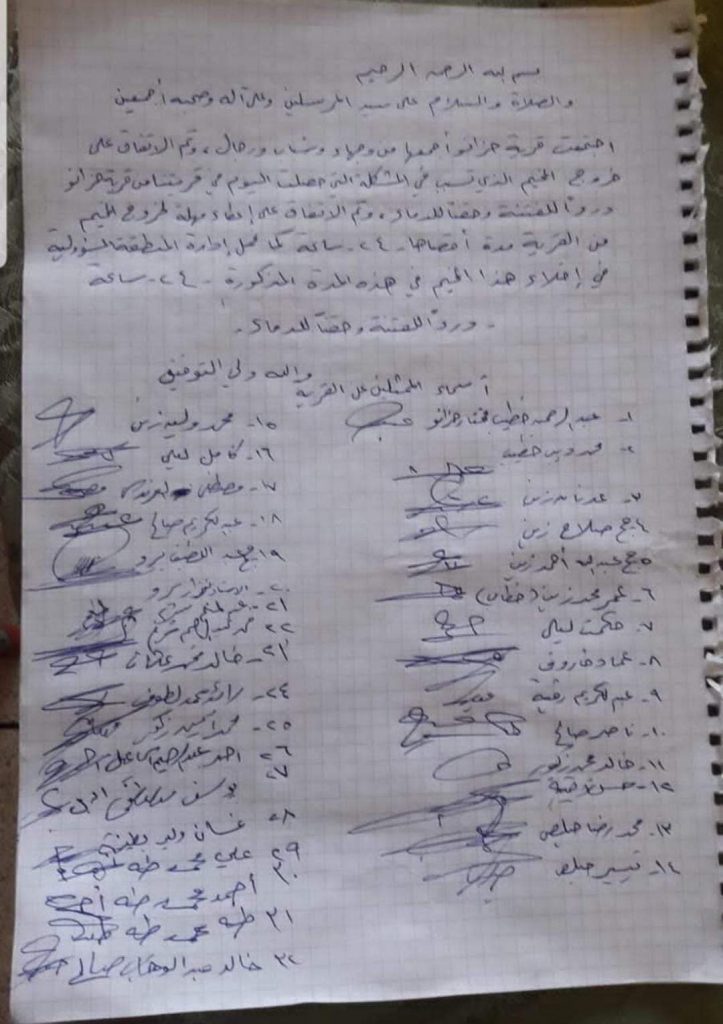 بسم الله الرحمن الرحيم
والصلاة والسلام على سيد المرسلين وعلى آله وصحبه أجمعين
اجتمعت قرية حزانو أجمعها من وجهاء وشباب ورجال، وتم الاتفاق على
خروج المخيم الذي تسبب في المشكلة التي حصلت اليوم في قريتنا من قرية حزانو
ودرءاً للفتنة وحقناً للدماء، وتم الاتفاق على إعطاء مهلة لخروج المخيم
من القرية مدة أقصاها - ٢٤ - ساعة كما نحمل إدارة المنطقة المسؤولية
في إخلاء هذا المخيم في هذه المدة المذكورة - ٢٤ - ساعة
- ودرءاً للفتنة وحقناً للدماء -
والله ولي التوفيق
أسماء الممثلين عن القرية
١- عبد الرحمن خطيب مختار حزانو
٢- محمد ديب خطيب
٣- عدنان زين
٤- حج صلاح زين
٥- حج عبد الله أحمد زين
٦- عمر محمد زين (خطاب)
٧- حكمت ليلى
٨- عماد فاروق
٩- عبد الكريم رقية
١٠- ناصر صالح
١١- خالد محمد
١٢- حسن رقية
١٣- محمد رضا حلبي
١٤- تيسير
١٥- محمد وليد زين
١٦- كامل ليلى
١٧- مصطفى
١٨- عبد الكريم صالح
١٩- حج عبد اللطيف برو
٢٠- برو
٢١- عبد المنعم
٢٢- محمد
٢١- خالد محمد
٢٤- رائد محمد لطوف
٢٥- محمد أمين زكور
٢٦ احمد عبد الرحيم
٢٧ يوسف مصطفى
٢٨ غسان وليد
٢٩ علي محمد طه
٣٠ أحمد محمد طه
٣١ طه محمد طه
٣٢ خالد عبد الوهاب صالح